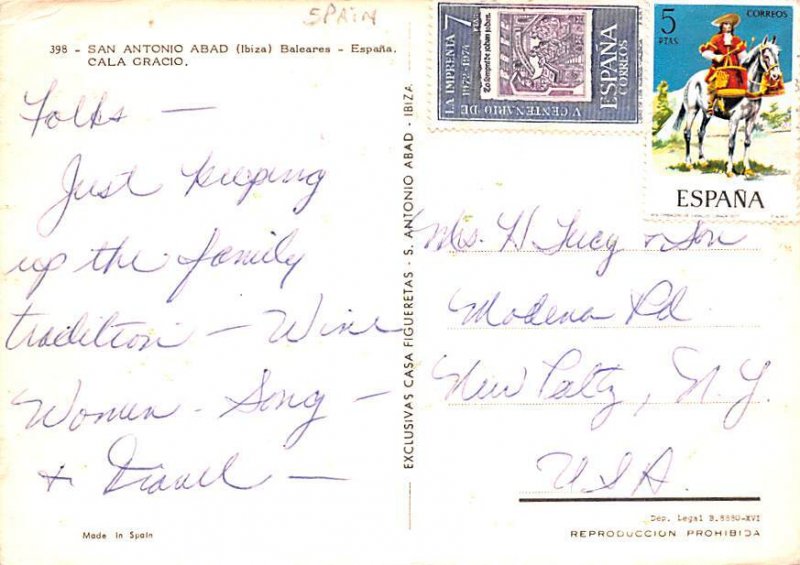 SPAIN
398 - SAN ANTONIO ABAD (Ibiza) Baleares - España.
CALA GRACIO.
Folks —
Just keeping
up the family
tradition — Wine
Women - Song —
+ Travel —
Made in Spain
EXCLUSIVAS CASA FIGUERETAS - S. ANTONIO ABAD - IBIZA
7
PTAS
V CENTENARIO DE
LA IMPRENTA
1972-1974
ESPAÑA
CORREOS
5
PTAS
CORREOS
ESPAÑA
Mrs. H Lucy + Son
Modena Rd.
New Paltz, N.Y.
USA.
Dep. Legal B. 8880-XVI
REPRODUCCION PROHIBIDA